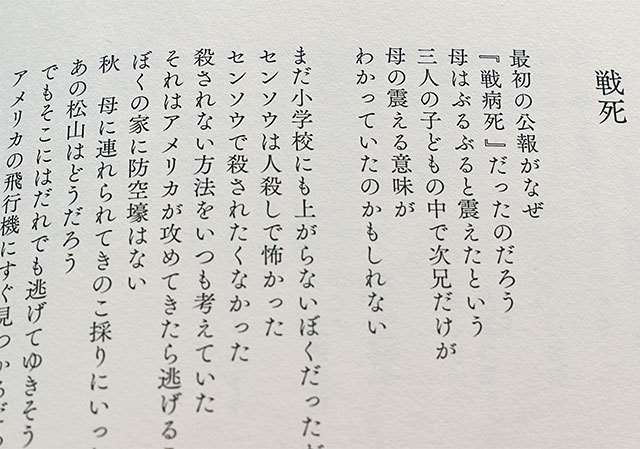 戦死
最初の公報がなぜ
『戦病死』だったのだろう
母はぶるぶると震えたという
三人の子どもの中で次兄だけが
母の震える意味が
わかっていたのかもしれない
まだ小学校にも上がらないぼくだった
センソウは人殺しで怖かった
センソウで殺されたくなかった
殺されない方法をいつも考えていた
それはアメリカが攻めてきたら逃げる
ぼくの家に防空壕はない
秋 母に連れられてきのこ採りにいっ
あの松山はどうだろう
でもそこにはだれでも逃げてゆきそう
アメリカの飛行機にすぐ見つかる